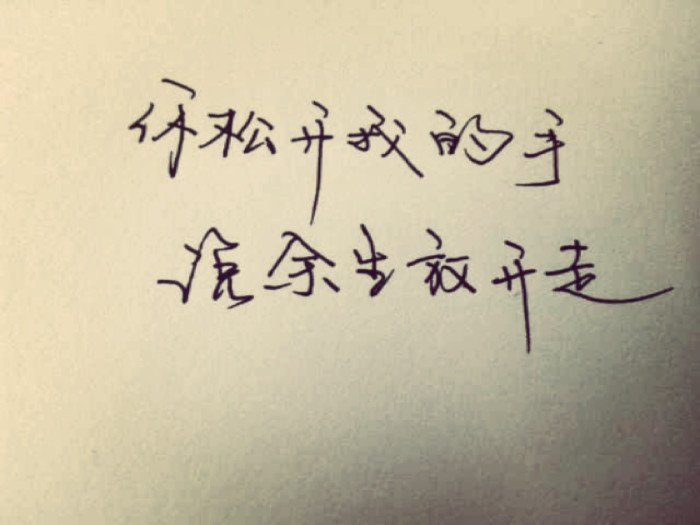 你松开我的手
说余生放开走